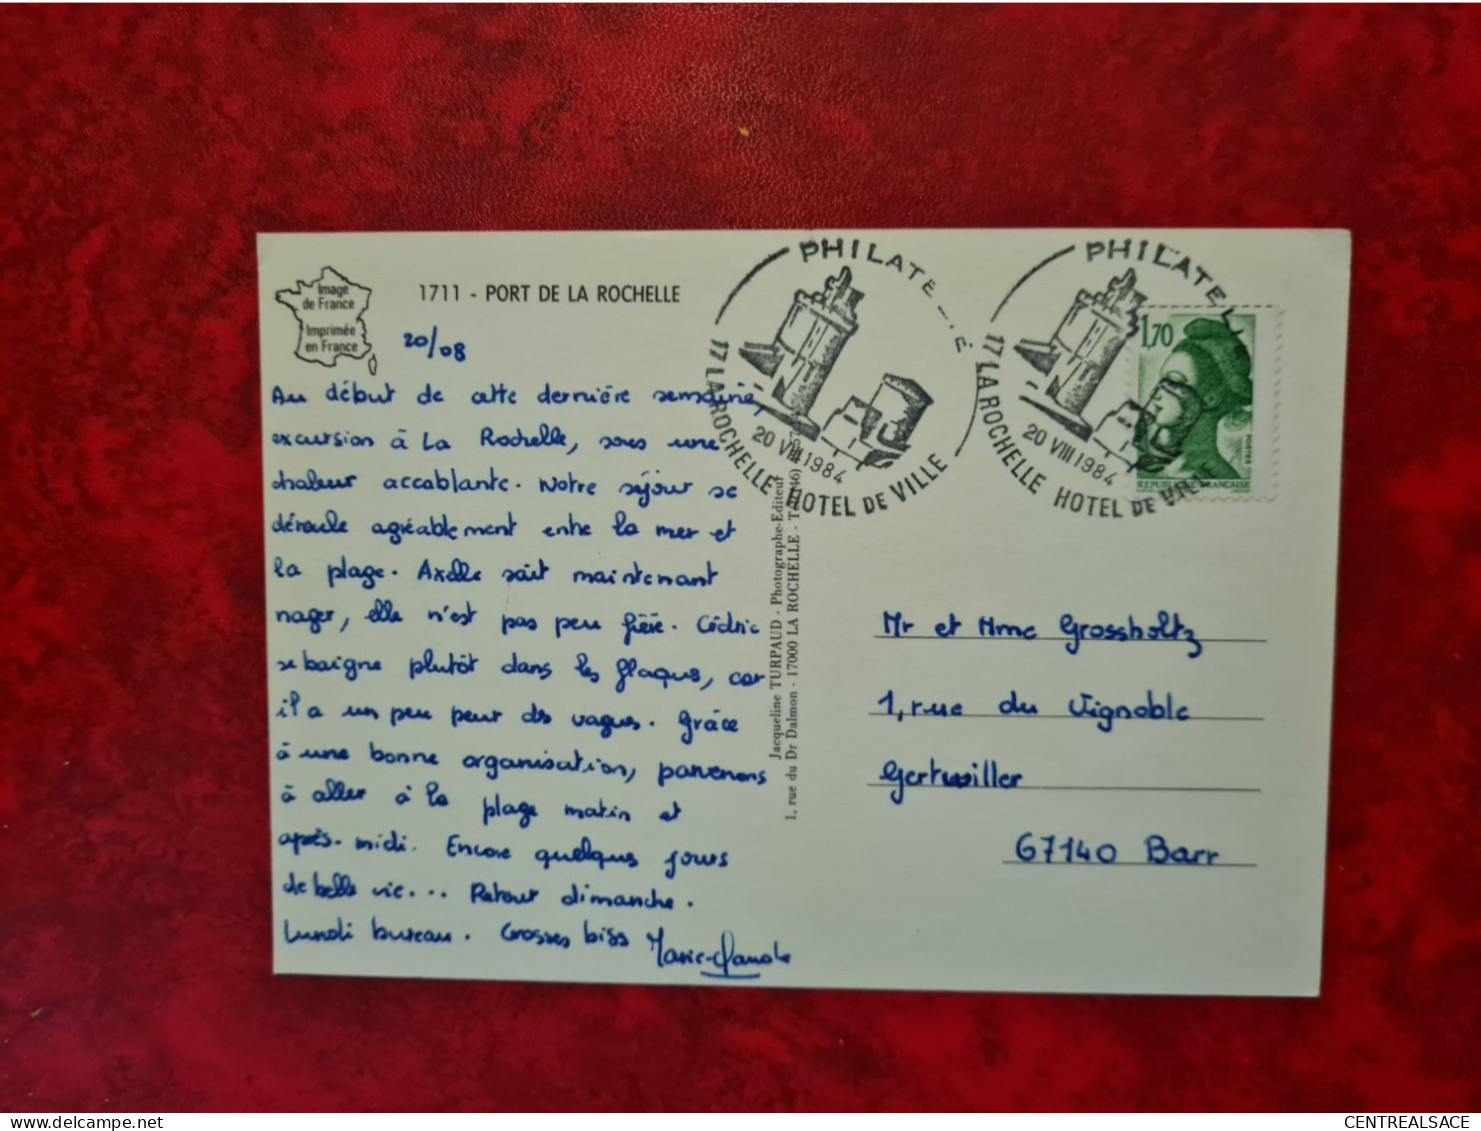 Image
de France
Imprimée
en France
1711 - PORT DE LA ROCHELLE
20/08
Au début de cette dernière semaine,
excursion à La Rochelle, sous une
chaleur accablante. Notre séjour se
déroule agréablement entre la mer et
la plage. Axelle sait maintenant
nager, elle n'est pas peu fière. Cédric
se baigne plutôt dans les flaques, car
il a un peu peur des vagues. Grâce
à une bonne organisation, parvenons
à aller à la plage matin et
après-midi. Encore quelques jours
de belle vie... Retour dimanche.
Lundi bureau. Grosses bises
Jacqueline TURPAUD - Photographe-Editeur
1, rue du Dr Dalmon - 17000 LA ROCHELLE
PHILATELIE
17 LA ROCHELLE HOTEL DE VILLE
20 VIII 1984
PHILATEL
17 LA ROCHELLE HOTEL DE VILLE
20 VIII 1984
1,70
POSTES
REPUBLIQUE FRANÇAISE
Mr et Mme Grossholtz
1, rue du Vignoble
Gertwiller
67140 Barr
CENTREALSACE